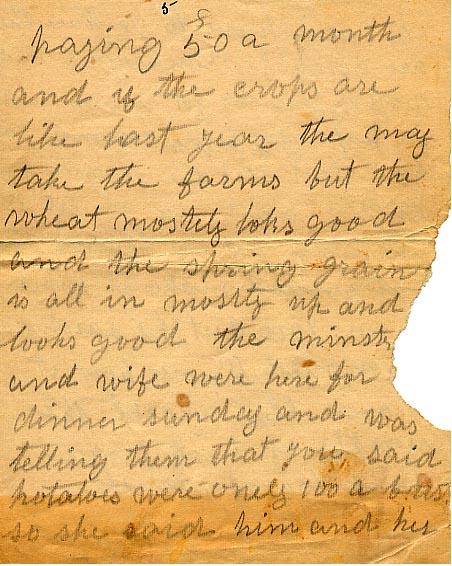 5
paying $50 a month
and if the crops are
like last year the may
take the farms but the
wheat mostely loks good
and the spring grain
is all in mostly up and
looks good the minstr
and wife were here for
dinner sunday and was
telling them that you said
potatoes were onely 100 a bus
so she said him and her